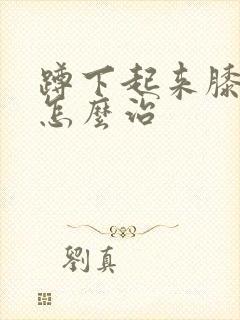 蹲下起来膝
怎麼治
劉真